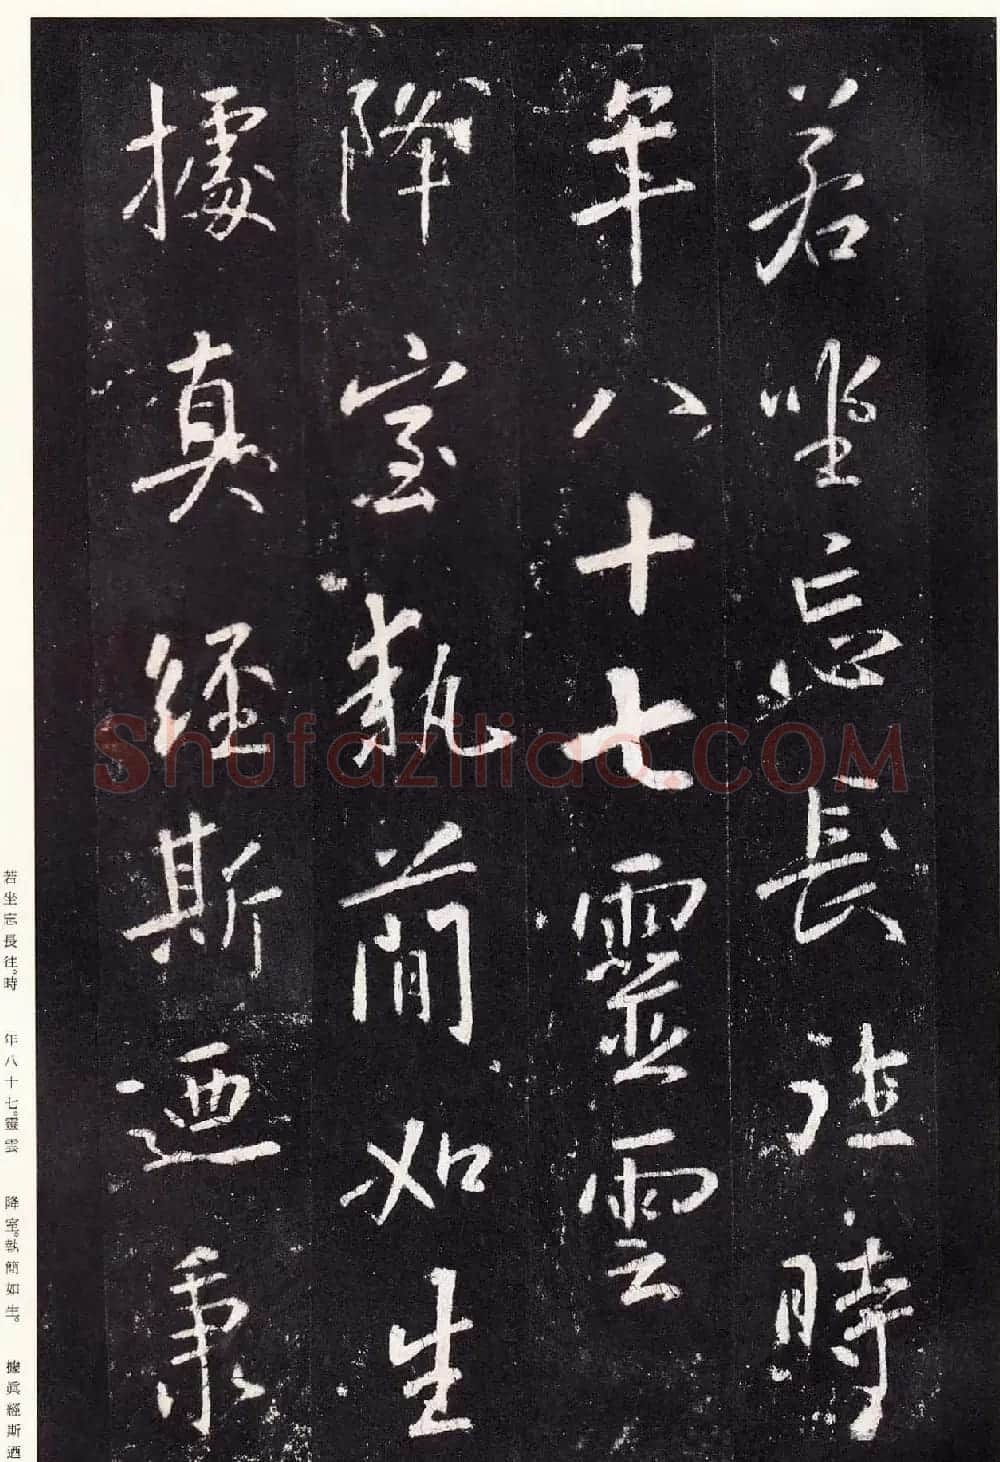 若坐忘長往時
年八十七靈雲
降室執簡如生
據真經斯迺秉
Shufaziliao.COM
若坐忘長往。時 年八十七。靈雲 降室。執簡如生。 據眞經斯迺